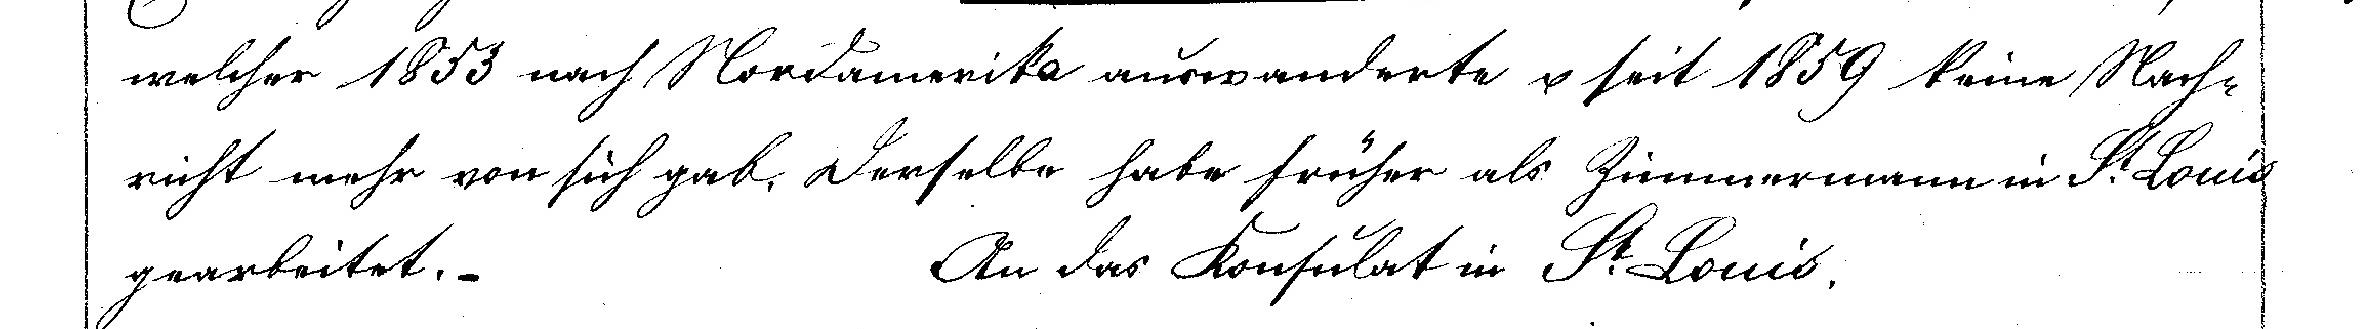 welcher 1853 nach Nordamerika auswanderte u seit 1859 keine Nach-
richt mehr von sich gab. Derselbe habe früher als Zimmermann in St. Louis
gearbeitet. -  An das Konsulat in St. Louis.